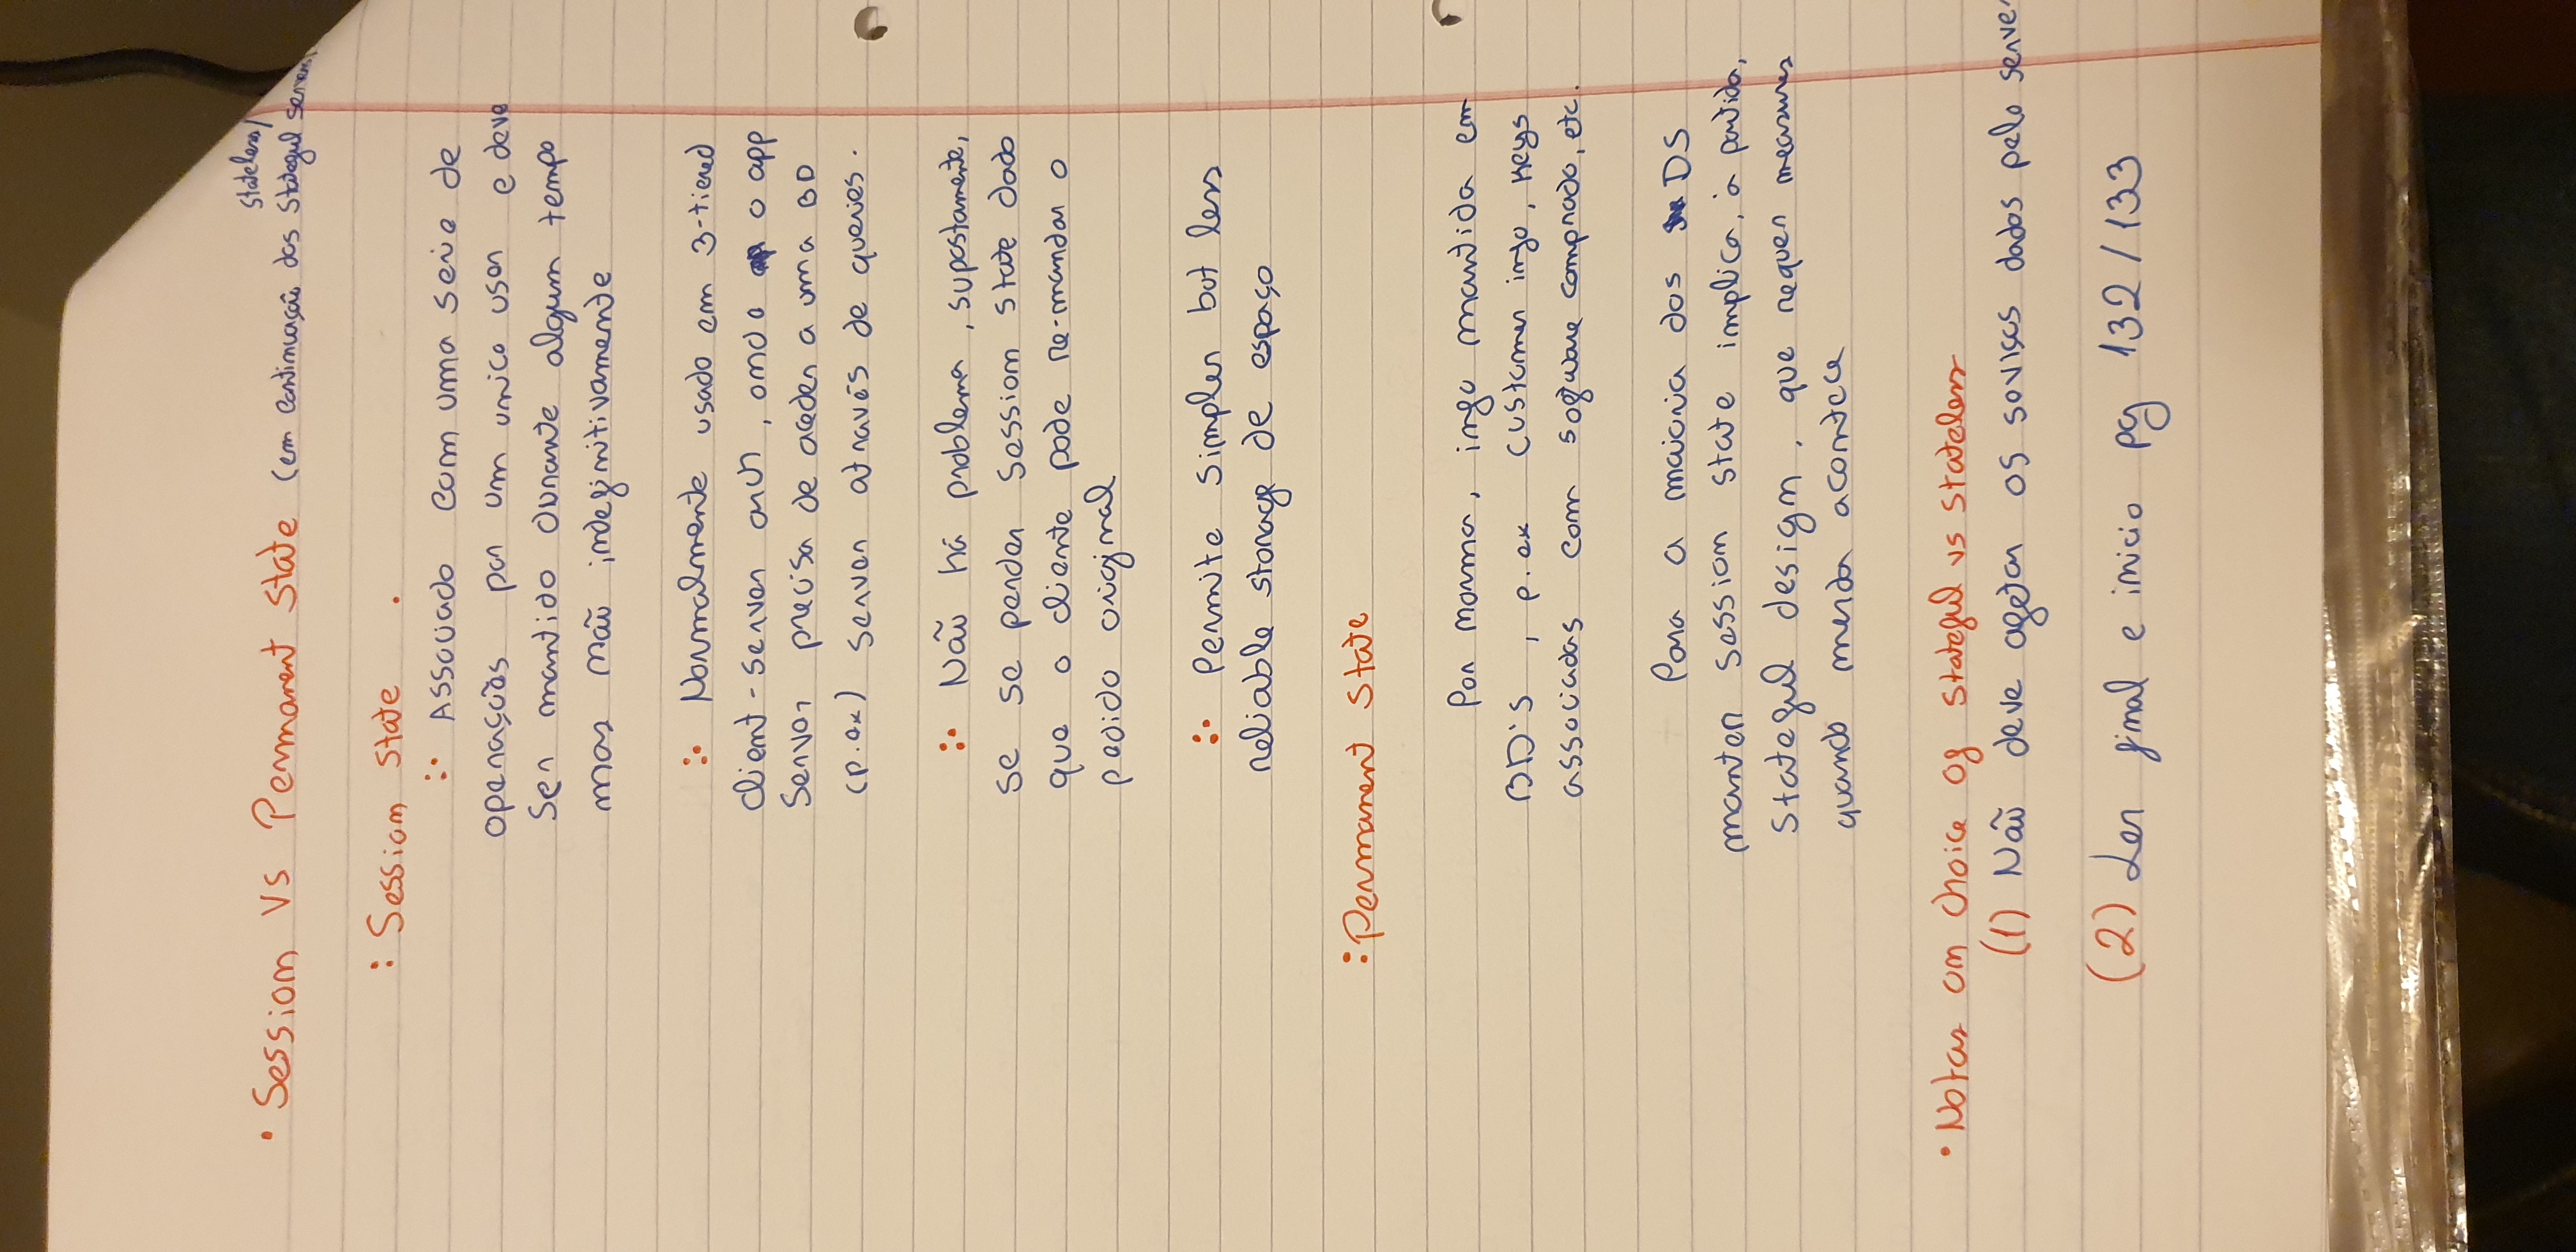 stateless/
• Session vs Permanent State (em continuação dos stateful servers)
: Session state .
:• Associado com uma serie de
operações por um unico user e deve
ser mantido durante algum tempo
mas não indefinitivamente
:• Normalmente usado em 3-tiered
client-server arch, onde o app
server precisa de aceder a uma BD
(p.ex) server através de queries.
:• Não há problema, supostamente,
se se perder session state dado
que o cliente pode re-mandar o
pedido original
:• Permite simpler but less
reliable storage de espaço
: Permanent state
Por norma, info mantida em
BD's, p.ex customer info, keys
associadas com software comprado, etc.
Para a maioria dos DS
manter session state implica, à partida,
stateful design, que requer measures
quando merda acontece
• Notas on choice of stateful vs stateless
(1) Não deve afetar os serviços dados pelo server
(2) Ler final e inicio pg 132/133